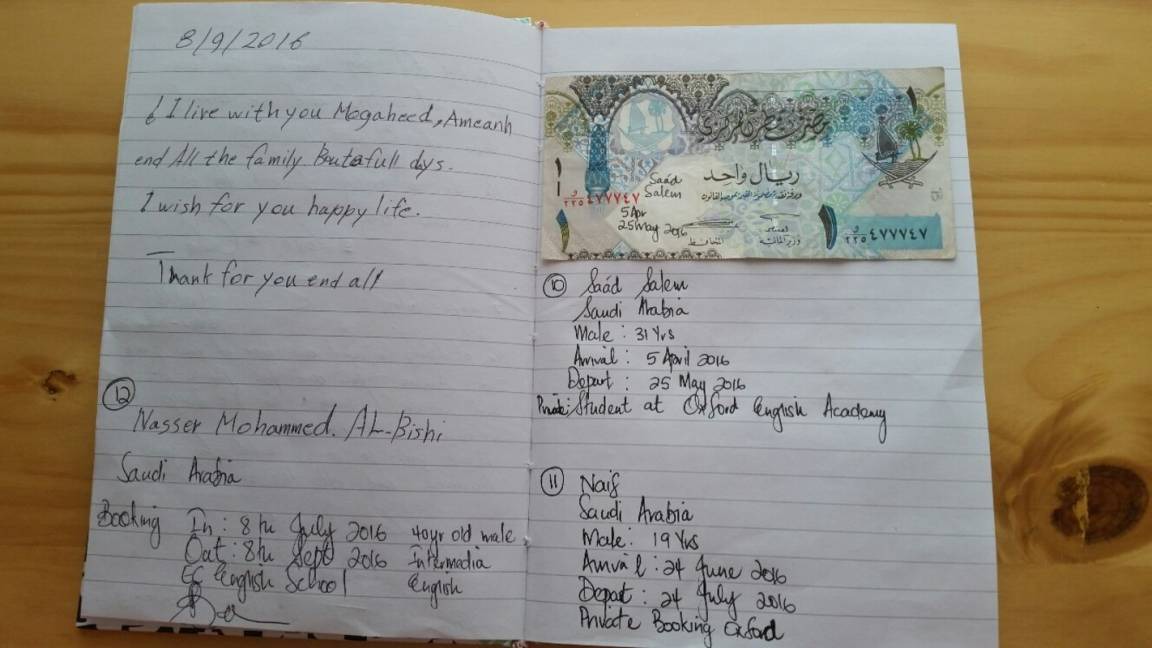 8/9/2016
I live with you Mogaheed, Ameanh
end All the family Beutefull dys.
I wish for you happy life.
Thank for you end all
12
Nasser Mohammed. AL-Bishi
Saudi Arabia
Booking In: 8th July 2016 40yr old male
Out: 8th Sept 2016 Intermedia
EC English School English
مصرف قطر المركزي
١
ريال واحد
١
Saád
Salem
٤٧٧٧٤٧
٢٢٥
5 Apr
25 May 2016
١
المحافظ
وزير المالية
١
٤٧٧٧٤٧
٢٢٥
10 Saád Salem
Saudi Arabia
Male: 31 Yrs
Arrival: 5 April 2016
Depart: 25 May 2016
Private: Student at Oxford English Academy
11 Naif
Saudi Arabia
Male: 19 Yrs
Arrival: 24 June 2016
Depart: 24 July 2016
Private Booking Oxford